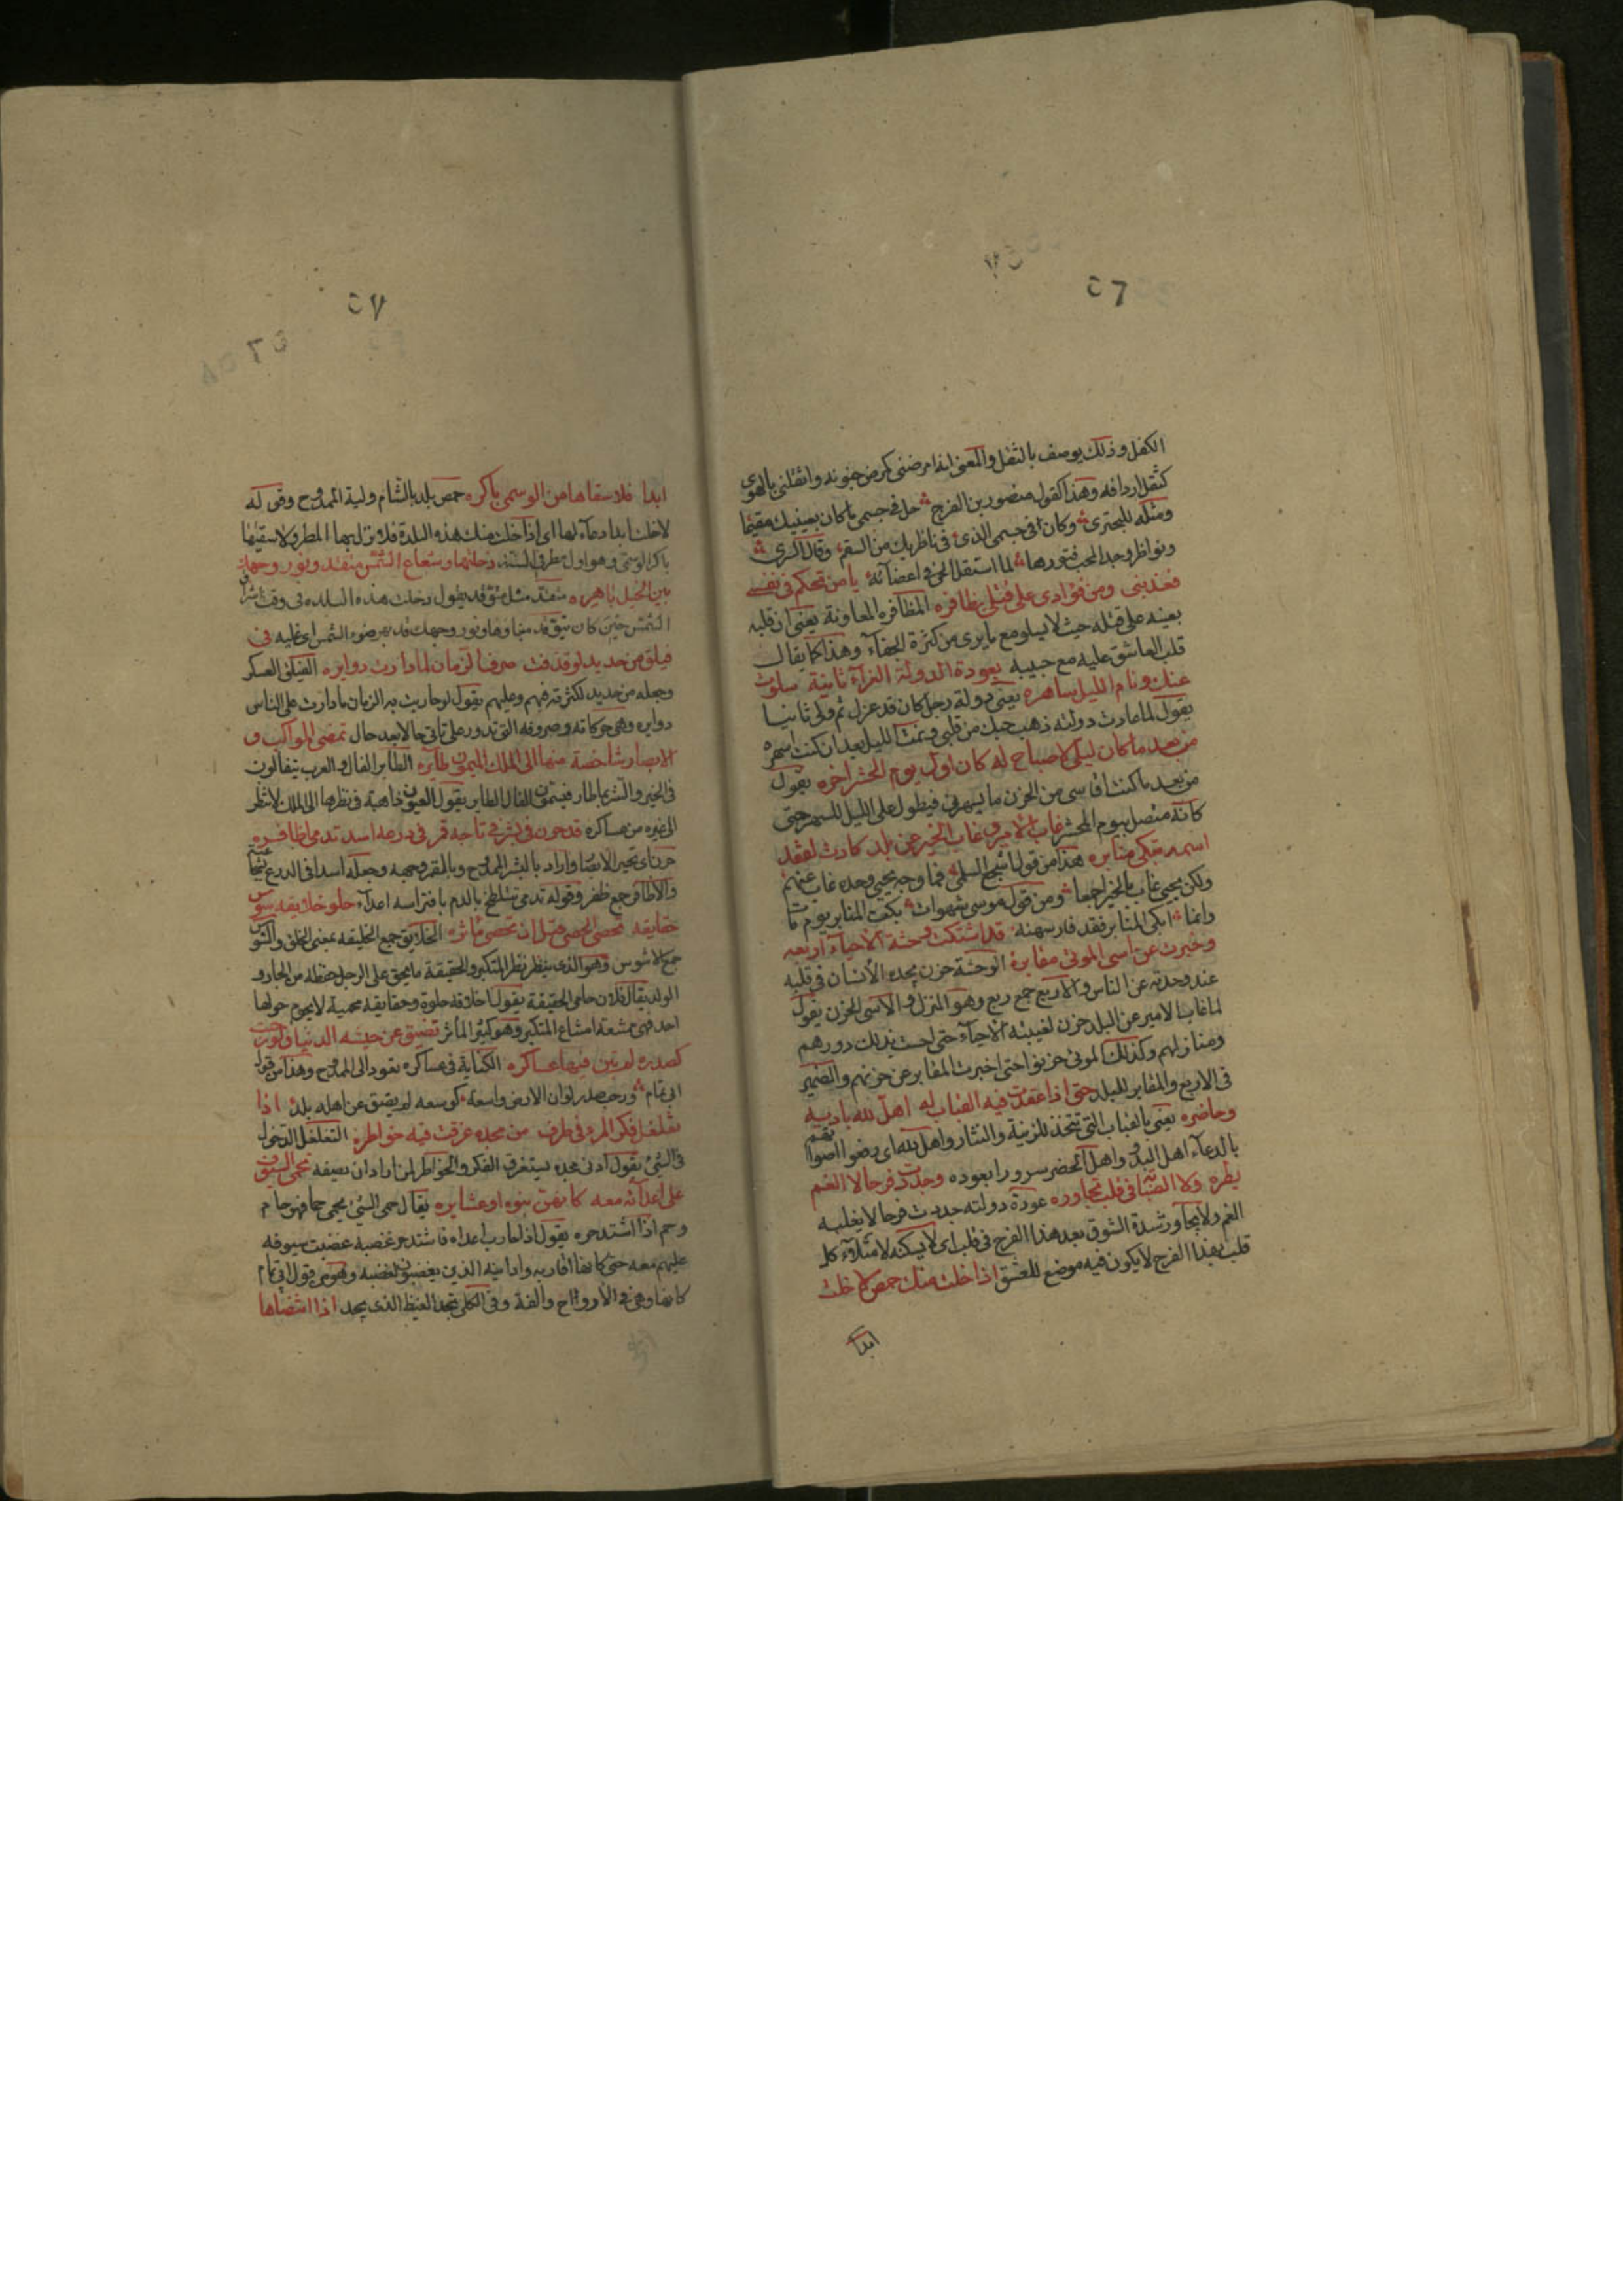 ٥٦
الكفل وذلك يوصف بالثقل والمعنى انه امرضنى كمرض جفونه واثقلنى بالهوى
كثقل اردافه وهذا كقول منصور بن الفرج حل فى جسمى ما كان بعينيك مقيما
ومثله للبحترى وكان فى جسمى الذى فى ناظريك من السقم وقال السرى
ونواظر وجد المحب فتورها لما استقل الحى فى اعضائه يا من تحكم فى نفسى
فعذبنى ومن فؤادى على قتلى يظافره المظافره المعاونة يعنى ان قلبه
يعينه على قتله حيث لا يسلو مع ما يرى من كثرة الجفاء وهذا كما يقال
قلب العاشق عليه مع حبيبه بعودة الدولة الغراء ثانية سلوت
عنك ونام الليل ساهره يعنى دولة رجل كان قد عزل ثم ولى ثانيا
يقول لما عادت دولته ذهب حبك من قلبى ونمت الليل بعد ان كنت اسهره
من بعد ما كان ليلى لا صباح له كان اول يوم الحشر اخره يقول
من بعد ما كنت اقاسى من الحزن ما يسهرنى فيطول على الليل للسهر حتى
كانه متصل بيوم المحشر غاب الامير فغاب الخير عن بلد كادت لفقد
اسمه تبكى منابره هذا من قول اشجع السلمى فما وجه يحيى وحده غاب عنهم
ولكن يحيى غاب بالخير اجمعا ومن قول موسى شهوات بكت المنابر يوم مات
وانما ابكى المنابر فقد فارسهنه قد اشتكت وحشة الاحياء اربعه
وخبرت عن اسى الموتى مقابره الوحشة حزن يجده الانسان فى قلبه
عند وحدته عن الناس والاربع جمع ربع وهو المنزل والاسى الحزن يقول
لما غاب الامير عن البلد حزن لغيبته الاحياء حتى احست بذلك دورهم
ومنازلهم وكذلك الموتى حزنوا حتى اخبرت المقابر عن حزنهم والضمير
فى الاربع والمقابر للبلد حتى اذا عقدت فيه القباب له اهل لله باديه
وحاضره يعنى بالقباب التى تتخذ للزينة والنثار واهل لله اى رفعوا اصواتهم
بالدعاء اهل البدو واهل الحضر سرورا بعوده وجددت فرحا لا الغم
يطرده ولا الصبابة فى قلب تجاوره عودة دولته جددت فرحا لا يغلبه
الغم ولا يجاور شدة الشوق بعد هذا الفرح فى قلب اى لا يسكنه لامتلاء كل
قلب بهذا الفرح لا يكون فيه موضع للعشق اذا خلت منك حمص لا خلت
ابدا
٥٧
ابدا فلا سقاها من الوسمى باكره حمص بلد بالشام ولية الممدوح وقوله
لا خلت ابدا دعاء لها اى اذا خلت منك هذه البلدة فلا نزل بها المطر ولا سقيها
باكر الوسمى وهو اول مطر فى السنة دخلتها وشعاع الشمس متقد ونور وجهك
بين الخيل باهره متقد مثل متوقد يقول دخلت هذه البلده فى وقت اشراق
الشمس حين كان يتوقد ضياؤها ونور وجهك قد بهر ضوء الشمس اى غلبه فى
فيلق من حديد لو قذفت به صرف الزمان لما دارت دوايره الفيلق العسكر
وجعله من حديد لكثرته فيهم وعليهم يقول لو حاربت به الزمان ما دارت على الناس
دوايره وهى حركاته وصروفه التى تدور على تاتى حالا بعد حال تمضى المواكب و
الابصار شاخصة منها الى الملك الميمون طائره الطاير الفال والعرب يتفالون
فى الخير والشر بما طار فيسمون الفال الطاير يقول العيون ذاهبة فى نظرها الى الملك لا تنظر
الى غيره من عساكره قد حرن فى بشر فى تاجه قمر فى درعه اسد تدمى اظافره
حرن اى تحير الابصار واراد بالبشر الممدوح وبالقمر وجهه وجعله اسدا فى الدرع لشجاعته
والاظافر جمع ظفر وقوله تدمى تتلطخ بالدم بافتراسه اعداءه حلو خلايقه شوس
حقايقه تحصى الحصى قبل ان تحصى ماثره الخلايق جمع الخليقه بمعنى الخلق والشوس
جمع الاشوس وهو الذى ينظر نظر المتكبر والحقيقة ما يحق على الرجل حفظه من الجار و
الولد يقال فلان حامى الحقيقة يقول اخلاقه حلوة وحقايقه محمية لا يحوم حولها
احد فهى ممتنعة امتناع المتكبر وهو كثير المآثر تضيق عن جيشه الدنيا ولو رحبت
كصدره لم تبن فيها عساكره الكناية فى عساكره تعود الى الممدوح وهذا من قول
ابى تمام ورحب صدر لو ان الارض واسعة كوسعه لم يضق عن اهله بلد اذا
تغلغل فكر المرء فى طرف من مجده غرقت فيه خواطره التغلغل الدخول
فى الشئ يقول ادنى مجده يستغرق الفكر والخواطر لمن اراد ان يصفه تحمى السيوف
على اعدائه معه كانهن بنوه او عشايره يقال حمى الشئ يحمى حما فهو حام
وحم اذا اشتد حره يقول اذا حارب اعداه فاشتد حر غضبه غضبت سيوفه
عليهم معه حتى كانها اقاربه وادانيه الذين يغضبون لغضبه وهو من قول ابى تمام
كانها وهى فى الارواح والغة وفى الكلى تجد الغيظ الذى يجد اذا انتضاها